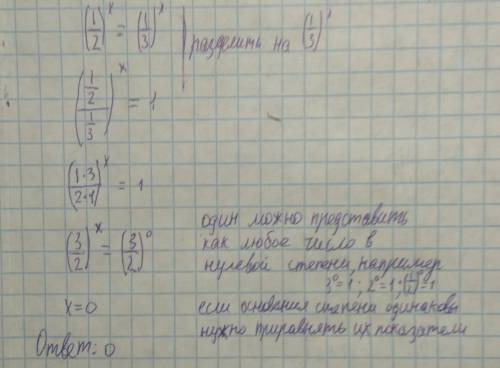 (1/2)^x = (1/3)^x | разделить на (1/3)^x
((1/2)/(1/3))^x = 1
((1·3)/(2·1))^x = 1
один можно представить
как любое число в
(3/2)^x = (3/2)^0 нулевой степени, например
3^0 = 1 ; 2^0 = 1 ;
x = 0 если основания степени одинаковы
нужно приравнять их показатели
Ответ: 0